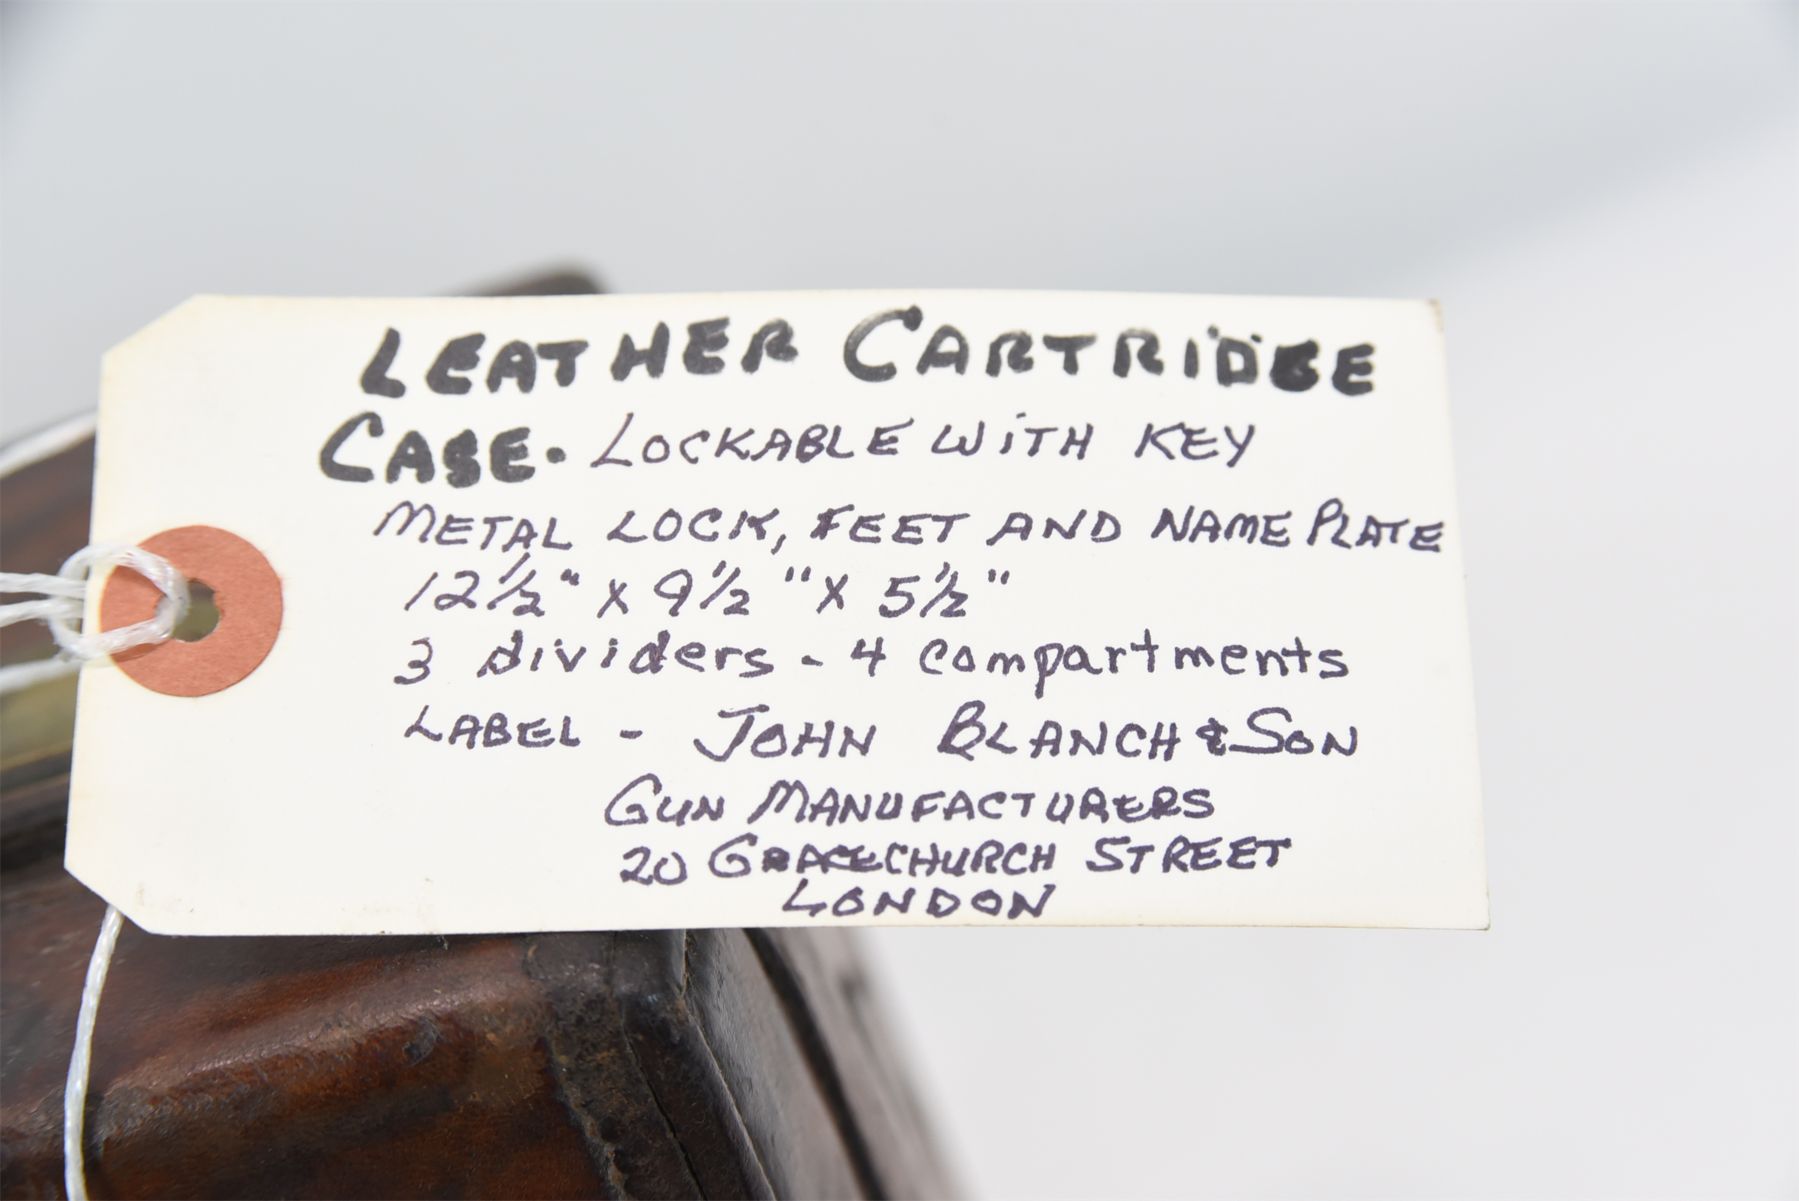 LEATHER CARTRIDGE
CASE. LOCKABLE WITH KEY
METAL LOCK, FEET AND NAME PLATE
12½" x 9½" x 5½"
3 dividers - 4 compartments
LABEL - JOHN BLANCH & SON
GUN MANUFACTURERS
20 GRACECHURCH STREET
LONDON